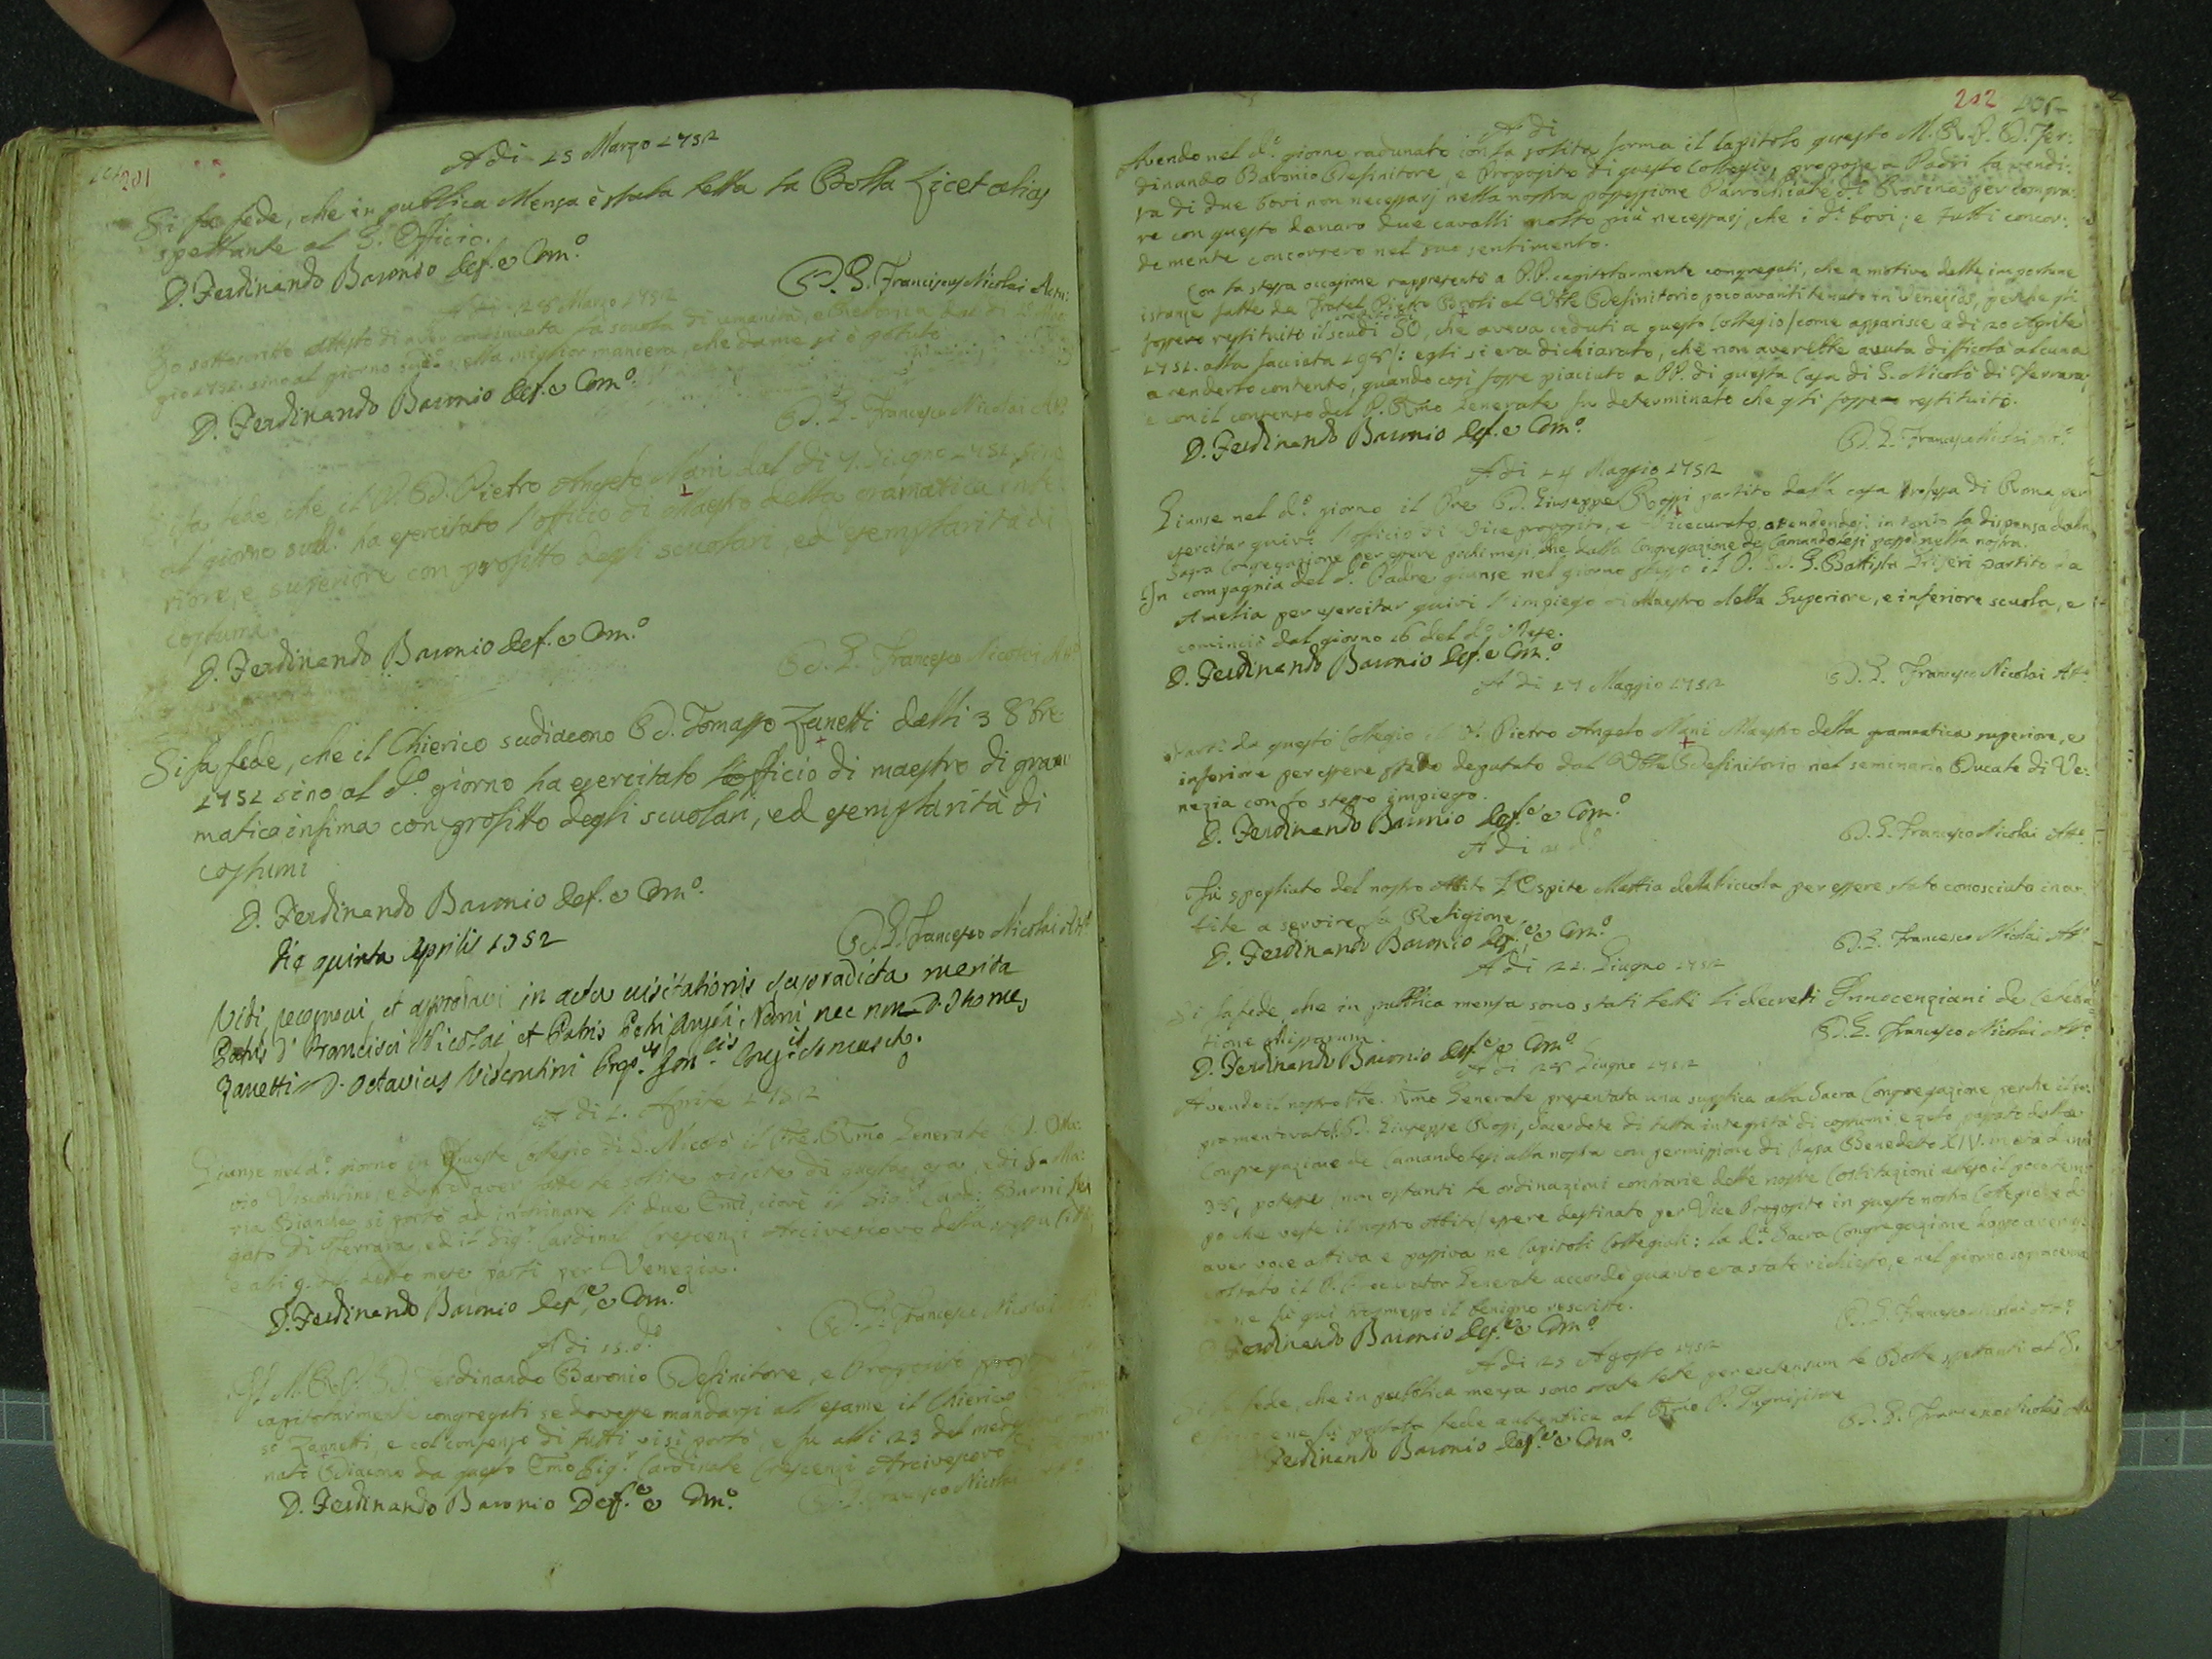 201
A di 25 Marzo 1752
Si fa fede, che in publica Mensa è stata letta la Bolla Licet alias
spettante al S. Officio.
D. Ferdinando Baronio Def.e Com.o
D. G. Franciscus Nicolai
A di 28 Marzo 1752
Io sottoscritto attesto di aver continuata la scuola di umanità, e Rettorica dal di
gio 1751 sino al giorno sud.o nella miglior maniera, che da me si è potuto
D. Ferdinando Baronio Def.e Com.o
D. G. Francesco Nicolai Att.o
Si fa fede che il P. D. Pietro Angelo Nani dal di 7. Giugno 1751 sino
al giorno sud.o ha esercitato l'officio di Maestro della gramatica infe
riore, e superiore con profitto degli scuolari, ed esemplarità di
costumi
D. Ferdinando Baronio Def.e Com.o
D. G. Francesco Nicolai Att.o
Si fa fede, che il Chierico sudiacono D. Tomasso Zanetti dalli 3 8bre
1751 sino al d.o giorno ha esercitato l'officio di maestro di gram
matica infima con profitto degli scuolari, ed esemplarità di
costumi
D. Ferdinando Baronio Def.e Com.o
D. G. Francesco Nicolai Att.o
Die quinta Aprilis 1752
Vidi, recognovi, et approbavi in actu visitationis supradicta merita
Patris D. Francisci Nicolai et Patris Petri Angeli Nani nec non D. Thomæ
Zanetti D. Octavius Vicentini Prep.us Gen.lis Cong.is Somasch.
A di 2. Aprile 1752
Giunse nel d.o giorno in questo Collegio di S. Nicolò il Pre. Rmo Generale D. Otta:
vio Visentini, e dopo aver fatte le solite visite di questa casa, e di S. Ma:
ria Bianca si portò ad inchinare li due Emi, cioè il Sig.r Card: Barni Le
gato di Ferrara, ed il Sig.r Cardinal Crescenzi Arcivescovo della
e alli 9. del detto mese partì per Venezia.
D. Ferdinando Baronio Def.e, e Com.o
D. G. Francesco Nicolai
A di 15. d.o
Il M. R. P. D. Ferdinando Baronio Definitore, e Proposito propose
capitolarmente congregati se dovesse mandarsi all'esame il Chierico
so Zannetti, e col consenso di tutti visi portò, e fu alli 23 del medesimo
nato Diacono da questo Emo Sig.r Cardinale Crescenzi Arcivescovo
D. Ferdinando Baronio Def.e e Com.o
D. G. Francesco Nicolai Att.o
202
A di
Avendo nel d.o giorno radunato con la solita forma il Capitolo questo M. R. P. D. Fer:
dinando Baronio Definitore, e Proposito di questo Collegio, propose a Padri la vendi:
ta di due bovi non necessarj nella nostra possessione Parrochiale di Rovina per compra:
re con questo danaro due cavalli molto più necessarj, che i d.i bovi; e tutti concor:
demente concorsero nel suo sentimento.
Con la stessa occasione rappresentò a P.P. capitolarmente congregati, che a motivo delle importune
istanze fatte da Fratel Pietro al Vble Definitorio poco avanti tenuto in Venezia, perche gli
fossero restituito il scudi 50, che aveva ceduti a questo Collegio /come apparisce a di 20 Aprile
1751. alla facciata 198/: egli si era dichiarato, che non averebbe avuta difficoltà alcuna
a renderlo contento, quando così fosse piaciuto a PP. di questa Casa di S. Nicolò di Ferrara;
e con il consenso del P. Rmo Generale fu determinato che gli fossero restituiti.
D. Ferdinando Baronio Def.e Com.o
D. G. Francesco Nicolai Att.o
A di 14 Maggio 1752
Giunse nel d.o giorno il Pre D. Giuseppe Rossi partito dalla casa Professa di Roma per
esercitar quivi l'officio di Vice proposito, e Vicecurato, attendendosi in tanto la dispensa dalla
Sagra Congregazione per essere pochi mesi, che dalla Congregazione de Camandolesi passò nella nostra.
In compagnia del d.o Padre giunse nel giorno stesso il P. D. G. Battista partito da
Amelia per esercitar quivi l'impiego di Maestro della Superiore, e inferiore scuola, e
cominciò dal giorno 16 del d.o Mese.
D. Ferdinando Baronio Def.e Com.o
D. G. Francesco Nicolai Att.o
A di 17 Maggio 1752
Partì da questo Collegio il P. Pietro Angelo Nani Maestro della grammatica superiore, e
inferiore per essere stato deputato dal Vble Definitorio nel seminario Ducale di Ve:
nezia con lo stesso impiego.
D. Ferdinando Baronio Def.e e Com.o
D. G. Francesco Nicolai Att.o
A di d.o
Fu spogliato del nostro Abito l'Ospite Mattia della Piccola per essere stato conosciuto ina:
bile a servire la Religione
D. Ferdinando Baronio Def.e, e Com.o
D. G. Francesco Nicolai Att.o
A di 22. Giugno 1752
Si fa fede, che in publica mensa sono stati letti li decreti Innocenziani de Celebra
tione Missarum.
D. G. Francesco Nicolai Att.o
D. Ferdinando Baronio Def.e e Com.o
A di 28 Giugno 1752
Avendo il nostro Pre. Rmo Generale presentata una supplica alla Sacra Congregazione, perche il so:
pramentovato P. D. Giuseppe Rossi, Sacerdote di tutta integrità di costumi, e zelo passato dalla
Congregazione de Camandolesi alla nostra con permissione di Papa Benedetto XIV. in età d'anni
38, potesse, non ostanti le ordinazioni contrarie delle nostre Costituzioni atteso il poco tem
po che veste il nostro Abito/ essere destinato per Vice Proposito in questo nostro Collegio, e d
aver voce attiva e passiva ne Capitoli Collegiali: la d.a Sacra Congregazione doppo aver
coltato il P. Procurator Generale accordò quanto era stato richiesto, e nel giorno
ne fu qui trasmesso il benigno rescritto.
D. Ferdinando Baronio Def.e e Com.o
D. G. Francesco Nicolai Att.o
A di 25 Agosto 1752
Si fa fede, che in publica mensa sono state lette per extensum le Bolle spettanti al S.
e ne fu portata fede autentica al Rmo P. Inquisitore
D. G. Francesco Nicolai
Ferdinando Baronio Def.e e Com.o